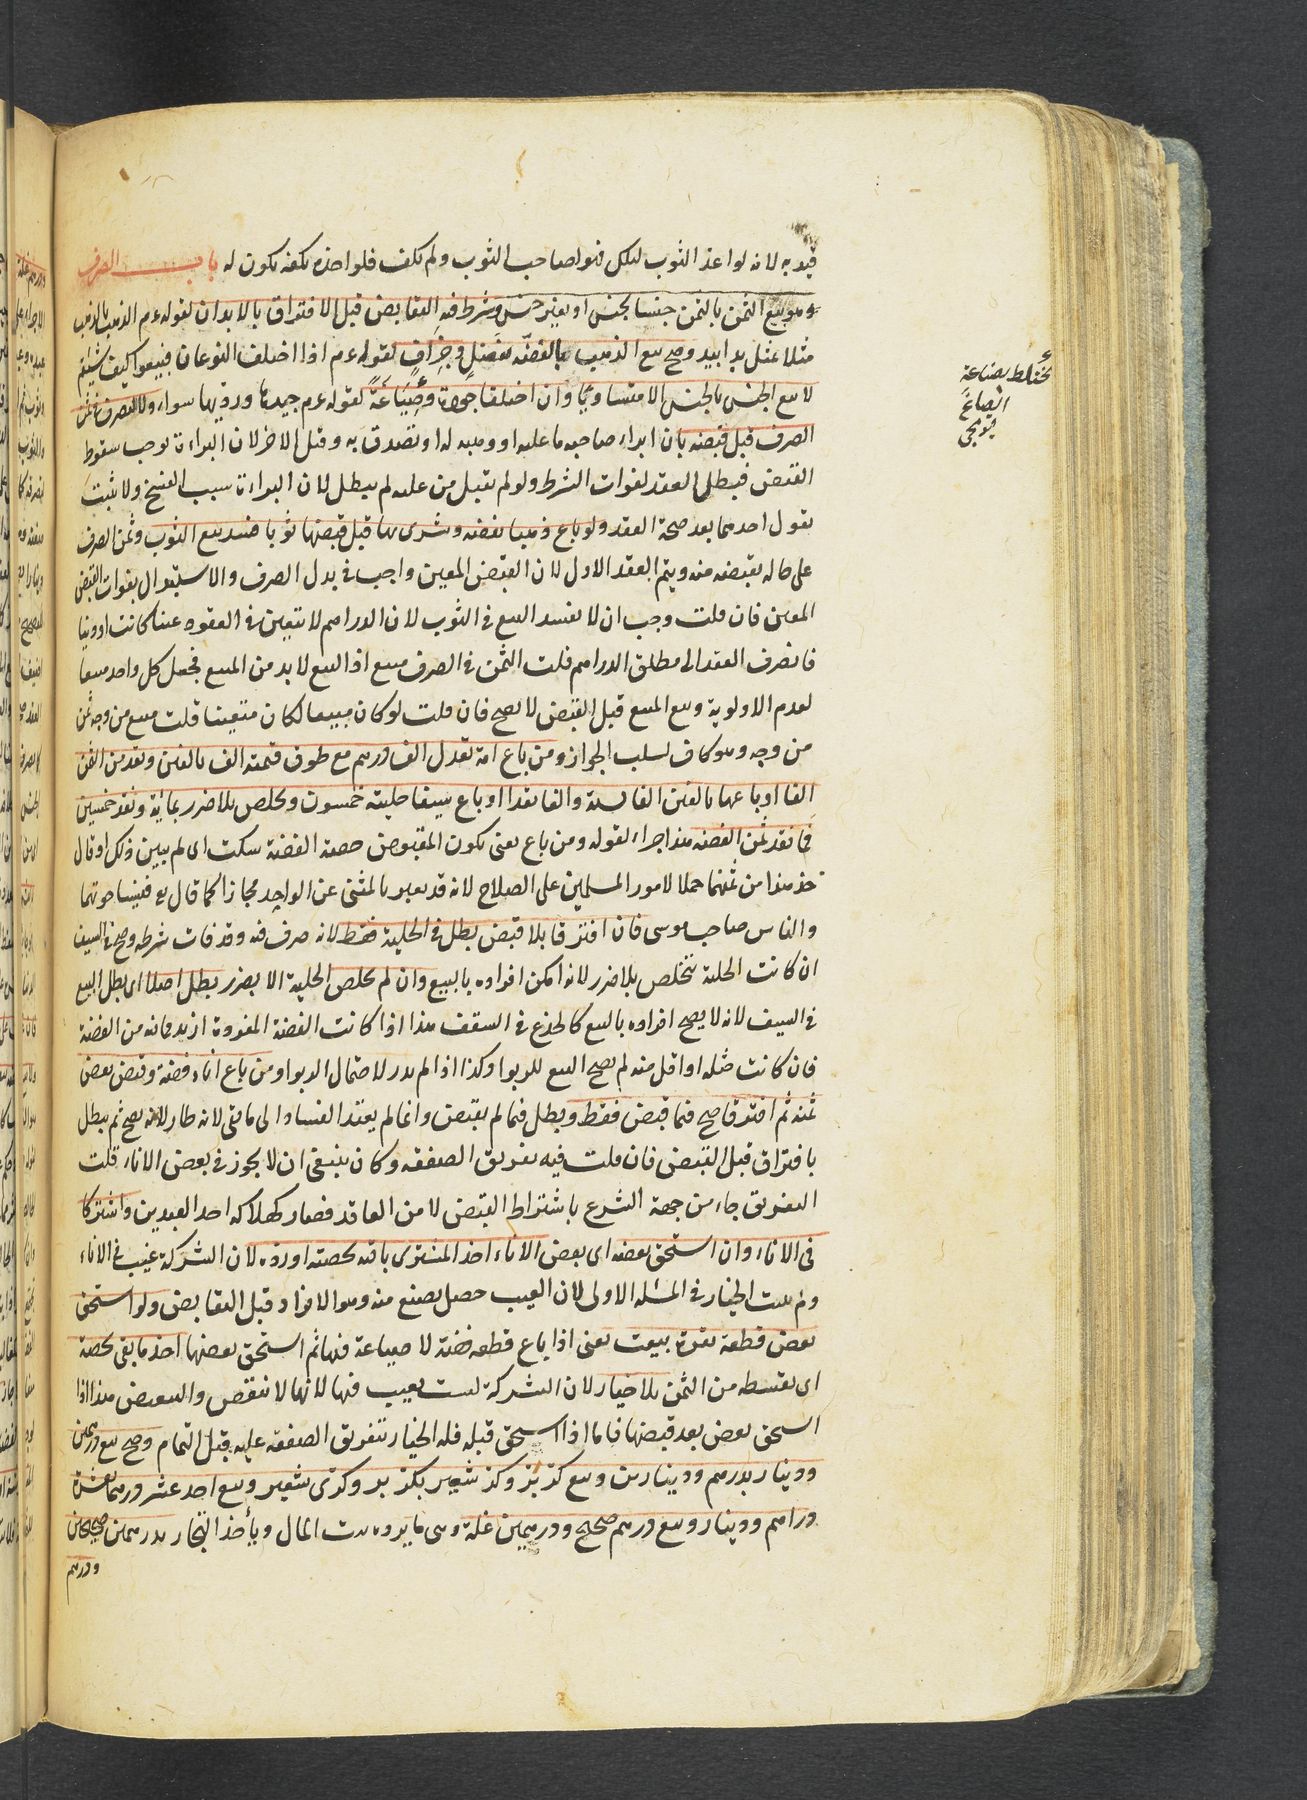 فيه به لانه لو اعد الثوب لذلك فهو لصاحب الثوب ولم يكف فلو اخذه بكفه يكون له باب الصرف
وهو بيع الثمن بالثمن جنسا بجنس او بغير جنس وشرط فيه التقابض قبل الافتراق بالابدان لقوله عم الذهب بالذهب
مثلا بمثل يدا بيد وصح بيع الذهب بالفضة بفضل وجزاف لقوله عم اذا اختلف النوعان فبيعوا كيف شئتم
لا بيع الجنس بالجنس الا متساويا وان اختلفا جودة وصياغة لقوله عم جيدها ورديها سواء ولا التصرف في ثمن
الصرف قبل قبضه بان ابراء صاحبه ما عليه او وهبه له او تصدق به وقبل الاخر لان البراءة توجب سقوط
القبض فيبطل العقد لفوات الشرط ولو لم يقبل من عليه لم يبطل لان البراءة سبب الفسخ ولا يثبت
بقول احدهما بعد صحة العقد ولو باع ذهبا بفضة وشرى بها قبل قبضها ثوبا فسد بيع الثوب وثمن الصرف
على حاله يقبضه منه ويتم العقد الاول لان القبض المعين واجب في بدل الصرف والاستبدال يفوت القبض
المعين فان قلت وجب ان لا يفسد البيع في الثوب لان الدراهم لا تتعين في العقود عينا كانت او دينا
فانصرف العقد الى مطلق الدراهم قلت الثمن في الصرف مبيع اذ البيع لا بد من المبيع فجعل كل واحد مبيعا
لعدم الاولوية وبيع المبيع قبل القبض لا يصح فان قلت لو كان مبيعا لكان متعينا قلت مبيع من وجه ثمن
من وجه وهو كاف لسلب الجواز ومن باع امة تعدل الف درهم مع طوق قيمته الف بالفين ونقد من الثمن
الفا او باعها بالفين الف نسية والف نقدا او باع سيفا حليته خمسون ويخلص بلا ضرر بمائة ونقد خمسين
فما نقد ثمن الفضة هذا جزاء لقوله ومن باع يعني يكون المقبوض حصة الفضة سكت اى لم يبين ذلك او قال
خذ هذا من ثمنهما حملا لامور المسلمين على الصلاح لانه قد يعبر بالمثنى عن الواحد مجازا كما قال تع فنسيا حوتهما
والناس صاحب موسى فان افترقا بلا قبض بطل في الحلية فقط لانه صرف فيه وقد فات شرطه وصح في السيف
ان كانت الحلية تتخلص بلا ضرر لانه امكن افراده بالبيع وان لم يخلص الحلية الا بضرر بطل اصلا اى بطل البيع
في السيف لانه لا يصح افراده بالبيع كالجذع في السقف هذا اذا كانت الفضة المفردة ازيد مما فيه من الفضة
فان كانت مثله او اقل منه لم يصح البيع للربوا وكذا اذا لم يدر لاحتمال الربوا ومن باع اناء فضة وقبض بعض
ثمنه ثم افترقا صح فيما قبض فقط وبطل فيما لم يقبض وانما لم يعتد الفساد الى ما بقى لانه طار لانه يصح ثم يبطل
بافتراق قبل القبض فان قلت فيه تفريق الصفقة وكان ينبغى ان لا يجوز في بعض الاناء قلت
التفريق جاء من جهة الشرع باشتراط القبض لا من العاقد فصار كهلاك احد العبدين واشتركا
في الاناء وان استحق بعضه اى بعض الاناء اخذ المشترى باقيه بحصته او رده لان الشركة عيب في الاناء
ولم يثبت الخيار في المسئلة الاولى لان العيب حصل بصنع منه وهو الافتراق قبل التقابض ولو استحق
بعض قطعة نقرة بيعت يعنى اذا باع قطعة فضة لا صياغة فيها ثم استحق بعضها اخذ ما بقى بحصته
اى بقسطه من الثمن بلا خيار لان الشركة ليست بعيب فيها لانها لا تنقص والتبعيض هذا اذا
استحق بعض بعد قبضها فاما اذا استحق قبله فله الخيار لتفريق الصفقة عليه قبل التمام وصح بيع درهمين
ودينار بدرهم ودينارين وبيع كر بر وكر شعير بكر بر وكرى شعير وبيع احد عشر درهما بعشرة
دراهم ودينار وبيع درهم صحيح ودرهمين غلة وهى ما يرده بيت المال وياخذ التجار بدرهمين صحيحين
ودرهم
الصائغ
قيومجى